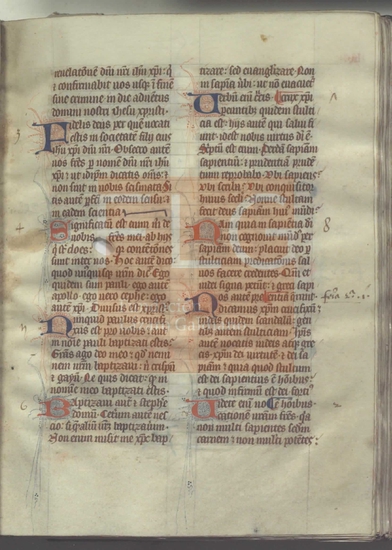 reuelatõnẽ dñi nr̃i ihũ xp̃i: q̃
et confirmabit uos usq; ĩ finẽ
sine crimine in die aduẽtus
domini nostri ihesu xp̃isti.
Fidelis deus per quẽ uocati
estis in societatẽ filij eius
ihũ xp̃i dñi nr̃i. Obsecro autẽ
uos fr̃es p nomẽ dñi nr̃i ihũ
xp̃i: ut idip̃m dicatis om̃s: et
non sint in uobis scismata. Si
tis autẽ p̃fc̃i in eodem sensu: et
in eadem scientia
Significatũ est enim m
de uobis fr̃es mei ab hijs
q̃ sũt cloes: q̃ contẽtiones
sunt inter uos. Hoc autẽ dico:
quod unusquisq; ur̃m dic̃. Ego
quidem sum pauli: ego autẽ
apollo: ego uero cephe: ego
autẽ xp̃i. Diuisus est xp̃us
Nunquid paulus crucifi
xus est pro uobis: aut
in noĩe pauli baptizati estis.
Gr̃as ago deo meo: q̃ nemi
nem ur̃m baptizaui: nĩ crispũ
et gayũ: ne quis dicat: q̃ in
nomĩe meo baptizati estis.
Baptizaui autẽ et stephe
domũ. Ceterum autẽ nes
cio: si quẽ aliũ ur̃m baptizauerim.
Non enim misit me xp̃c bap
tizare: sed euanglizare. Non
in sapĩa ũbi: ut nõ euacuet~
crux xp̃i
Verbũ enĩ crucis
pereuntibus quidem stulti
cia est: hijs autẽ qui salui fi
unt: idest nobis uirtus dĩ ẽ.
Sc̃ptũ est enim. Perdã sapĩam
sapientiũ: et prudentiã prudẽ
tium reprobabo. Vbi sapiens:
vbi scriba: vbi conquisitor
huius sc̃li. Nonne stultam
fecit deus sapĩam huiꝰ mũdi.
Nam quia in sapiẽtia dĩ
non cognouit mũdꝰ per
sapĩam deum: placuit deo p
stulticiam p̃dicatõnis sal
uos facere credentes. Qm̃ et
iudei signa petũt: et greci sapĩã
querũt
Nos autẽ p̃
dicamus xp̃m crucifixũ:
iudeis quidem scandalũ: gen
tibus autem stulticiam: ip̃is
autẽ uocatis iudeis atq; gre
cis: xp̃m dei uirtutẽ et dei sa
pĩam: quia quod stultum
est dei sapientius ẽ hõibꝰ:
et quod infirmũ est dei forciꝰ
est hõibus.
Videte enĩ uo
cationẽ ur̃am fr̃es: q̃a
non multi sapientes sc̃dm
carnem: et non multi potẽtes: